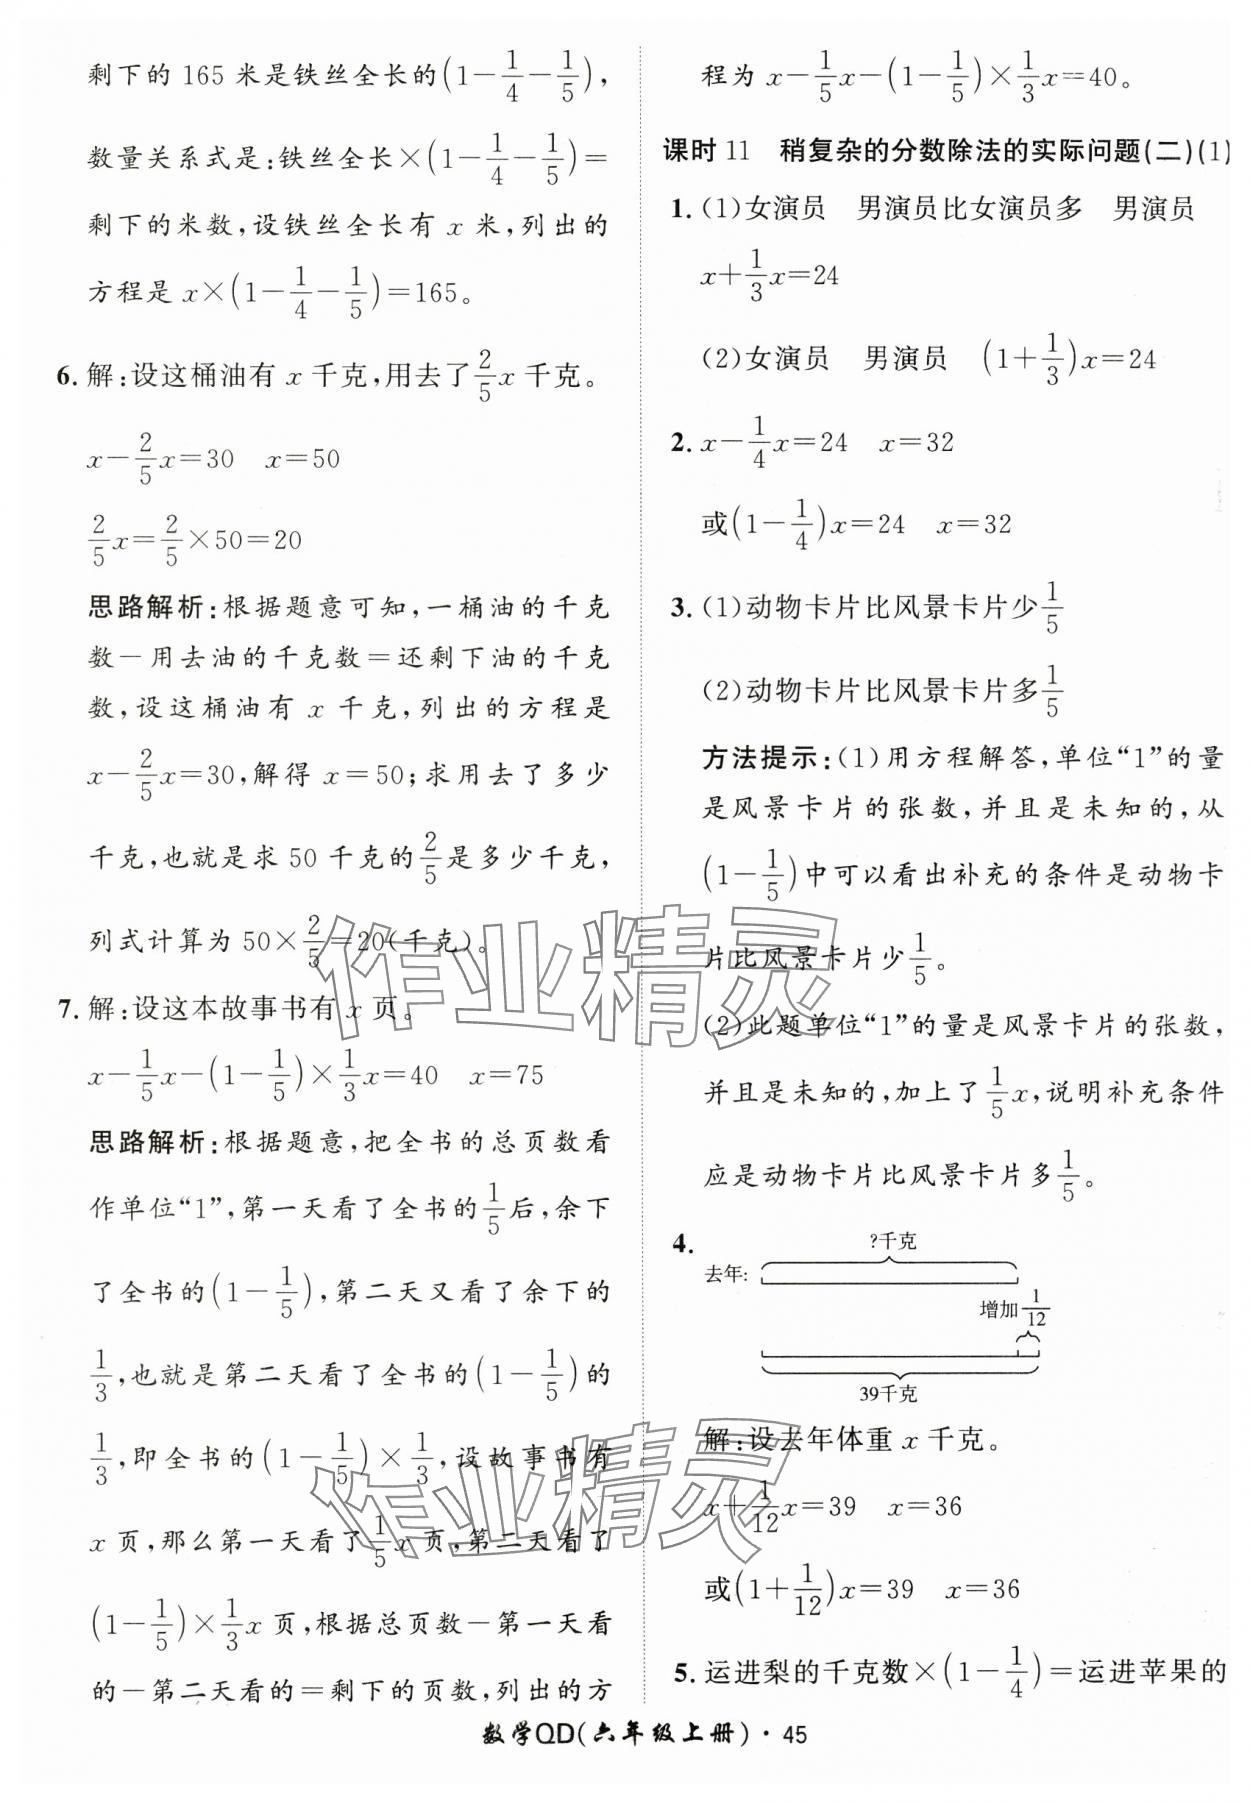 剩下的 165 米是铁丝全长的(1-1/4-1/5),
数量关系式是:铁丝全长×(1-1/4-1/5)=
剩下的米数,设铁丝全长有 x 米,列出的
方程是 x×(1-1/4-1/5)=165。
6. 解:设这桶油有 x 千克,用去了2/5x 千克。
x-2/5x=30 x=50
2/5x=2/5×50=20
思路解析:根据题意可知,一桶油的千克
数-用去油的千克数=还剩下油的千克
数,设这桶油有 x 千克,列出的方程是
x-2/5x=30,解得 x=50;求用去了多少
千克,也就是求 50 千克的2/5是多少千克,
列式计算为 50×2/5=20(千克)。
7. 解:设这本故事书有 x 页。
x-1/5x-(1-1/5)×1/3x=40 x=75
思路解析:根据题意,把全书的总页数看
作单位“1”,第一天看了全书的1/5后,余下
了全书的(1-1/5),第二天又看了余下的
1/3,也就是第二天看了全书的(1-1/5)的
1/3,即全书的(1-1/5)×1/3,设故事书有
x 页,那么第一天看了1/5x 页,第二天看了
(1-1/5)×1/3x 页,根据总页数-第一天看
的-第二天看的=剩下的页数,列出的方
程为 x-1/5x-(1-1/5)×1/3x=40。
课时 11 稍复杂的分数除法的实际问题(二)(1)
1. (1)女演员 男演员比女演员多 男演员
x+1/3x=24
(2)女演员 男演员 (1+1/3)x=24
2. x-1/4x=24 x=32
或(1-1/4)x=24 x=32
3. (1)动物卡片比风景卡片少1/5
(2)动物卡片比风景卡片多1/5
方法提示:(1)用方程解答,单位“1”的量
是风景卡片的张数,并且是未知的,从
(1-1/5)中可以看出补充的条件是动物卡
片比风景卡片少1/5。
(2)此题单位“1”的量是风景卡片的张数,
并且是未知的,加上了1/5x,说明补充条件
应是动物卡片比风景卡片多1/5。
4.
?千克
去年:
增加1/12
39千克
解:设去年体重 x 千克。
x+1/12x=39 x=36
或(1+1/12)x=39 x=36
5. 运进梨的千克数×(1-1/4)=运进苹果的
数学QD(六年级上册)·45
作业精灵
作业精灵